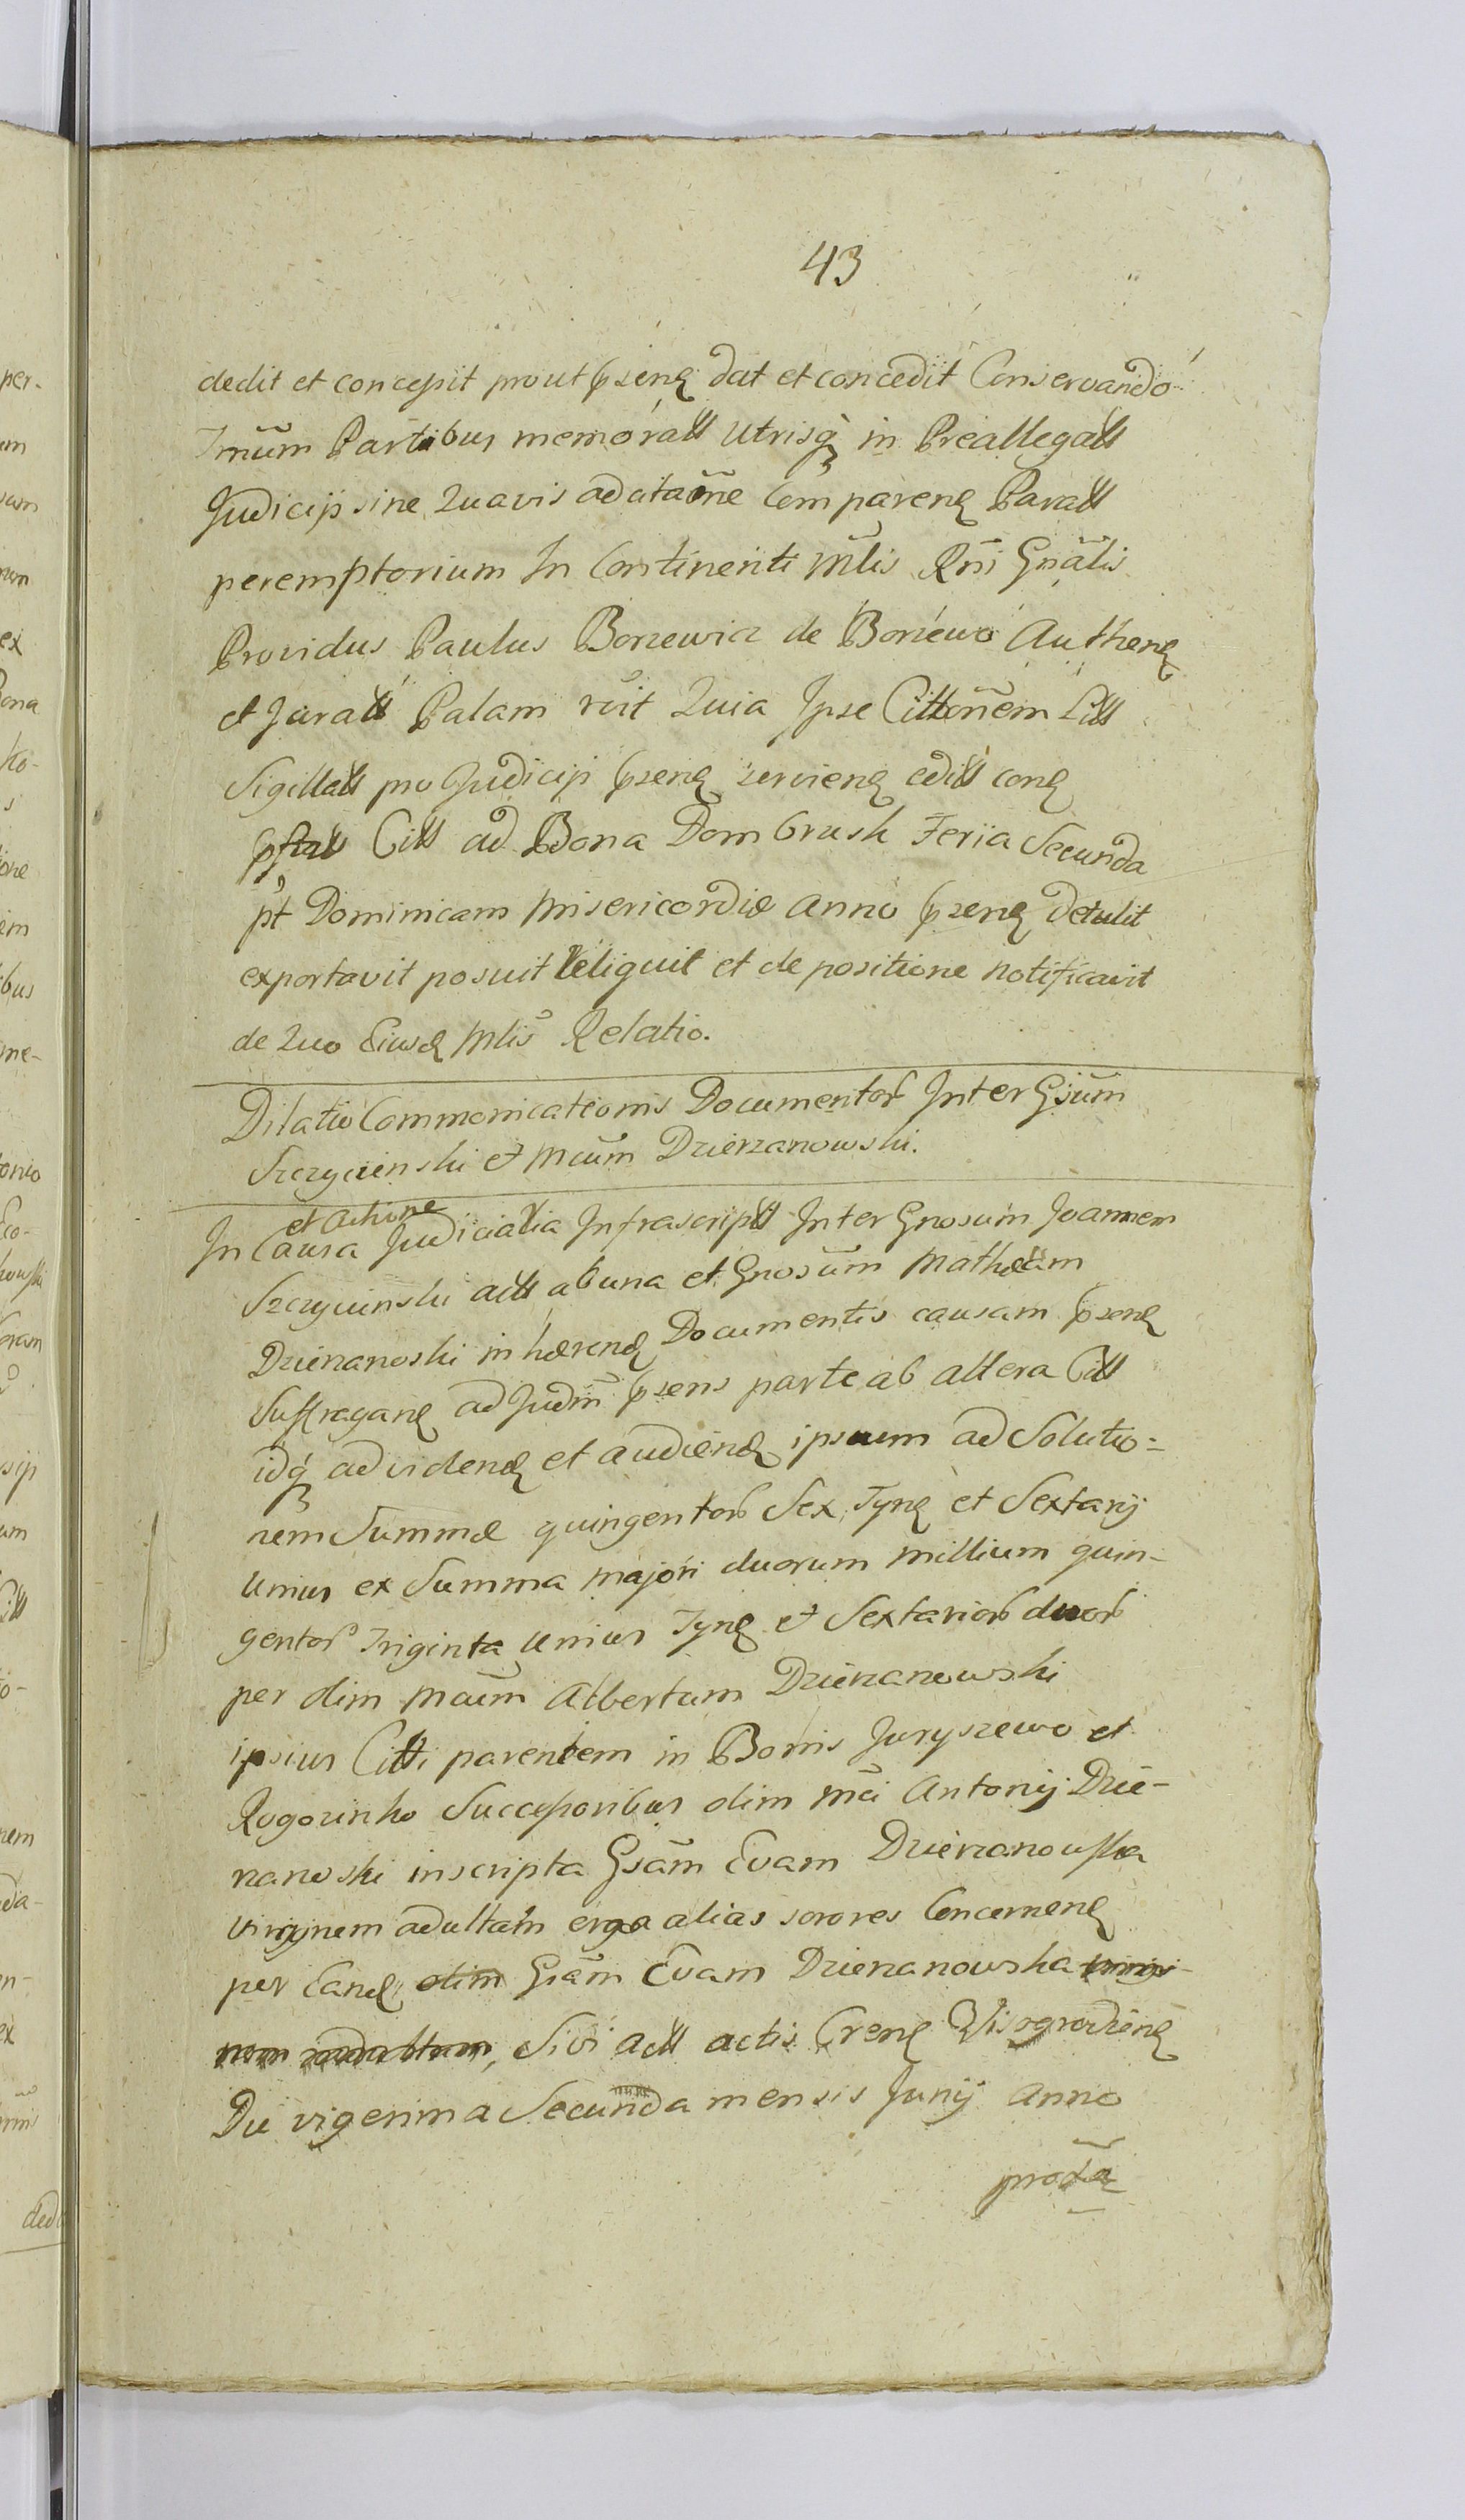 43
dedit et concessit prout pseng dat et concedit Conservando
Tmūm Partibus memoratt utrisq in Preallegatt
Judicijs sine quavis adcitaōne Compareng Paratt
peremptorium In Continenti Mtlis Rni Gnalis
Providus Paulus Borzewicz de Borzewo Autheng
et Juratt Palam rvit Quia Ipse Cittonem Litt
Sigillatt pro Judicijs pseng servieng editt cong
Citt ad Bona Dombrusk Feria Secunda
pt Dominicam Misericordiæ Anno pseng detulit
exportavit posuit reliquit et de positione notificavit
de Quo Eiusd Mtlis Relatio.
Dilatio Communicationis Documentor Inter Gsum
Szczycienski et Mcum Dzierzanowski.
et Actione
In Causa Judicialia Infrascriptt Inter Gnosum Joannem
Szczycinski actt ab una et Gnosum Mathæum
Dzierzanoski in hærend Documentis causam pseng
Suffragang ad Judm psens parte ab altera Citt
idq ad videnđ et audiend ipsum ad Solutio=
nem Summæ quingentor Sex Tynf et Sextarij
Unius ex Summa majori duorum millium quin-
gentor Triginta Unius Tynf et Sextarior duor
per olim Mcum Albertum Dzierzanowski
ipsius Citti parentem in Bonis Juryszewo et
Rogozinko Successoribus olim Mci Antonij Dzie-
rzanoski inscripta Gsam Evam Dzierzanowska
virginem adultam erga alias sorores Concerneng
per Eand olim Gsam Evam Dzierzanowska
Sivi actt actis Creng Visogrodieng
Die vigesima Secunda mensis Junij Anno